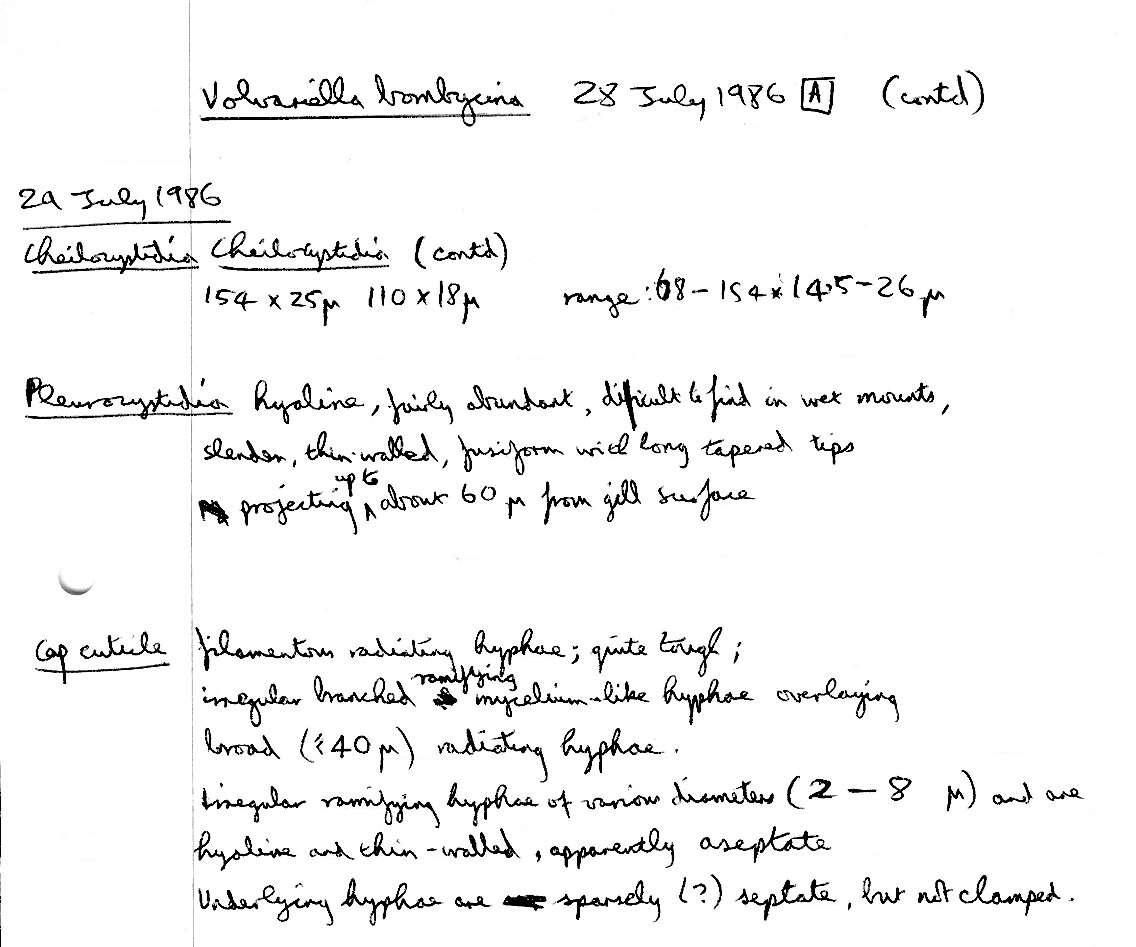 Volvariella bombycina 28 July 1986 A (contd)
29 July 1986
Cheilocystidia Cheilocystidia (contd)
154 x 25µ 110 x 18µ range: 68 - 154 x 14.5 - 26 µ
Pleurocystidia hyaline, fairly abundant, difficult to find in wet mounts,
slender, thin-walled, fusiform with long tapered tips
projecting up to about 60 µ from gill surface
Cap cuticle filamentous radiating hyphae; quite tough;
irregular branched ramifying mycelium-like hyphae overlaying
broad (≤40µ) radiating hyphae.
Irregular ramifying hyphae of various diameters (2 - 8 µ) and are
hyaline and thin-walled, apparently aseptate
Underlying hyphae are sparsely (?) septate, but not clamped.